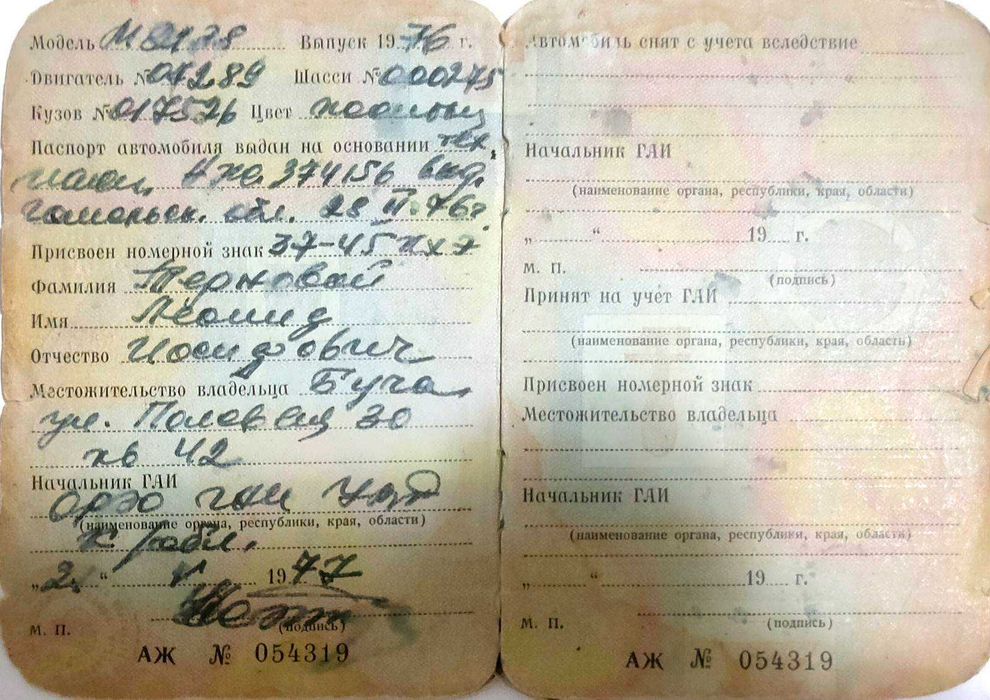 Модель М 8138 Выпуск 1976 г.
Двигатель № 01289 Шасси № 000275
Кузов № 017526 Цвет
Паспорт автомобиля выдан на основании тех.
374156 выд.
обл. 28 76 г
Присвоен номерной знак 37-45
Фамилия Терновой
Имя Леонид
Отчество Иосифович
Местожительство владельца Буча
ул. Полевая 30
кв 42
Начальник ГАИ
ОРЭО ГАИ
(наименование органа, республики, края, области)
обл.
„2 “ 1977
(подпись)
М. П.
АЖ № 054319
Автомобиль снят с учета вследствие
Начальник ГАИ
(наименование органа, республики, края, области)
„ “ 19 г.
М. П.
(подпись)
Принят на учет ГАИ
(наименование органа, республики, края, области)
Присвоен номерной знак
Местожительство владельца
Начальник ГАИ
(наименование органа, республики, края, области)
„ “ 19 г.
М. П. (подпись)
АЖ № 054319